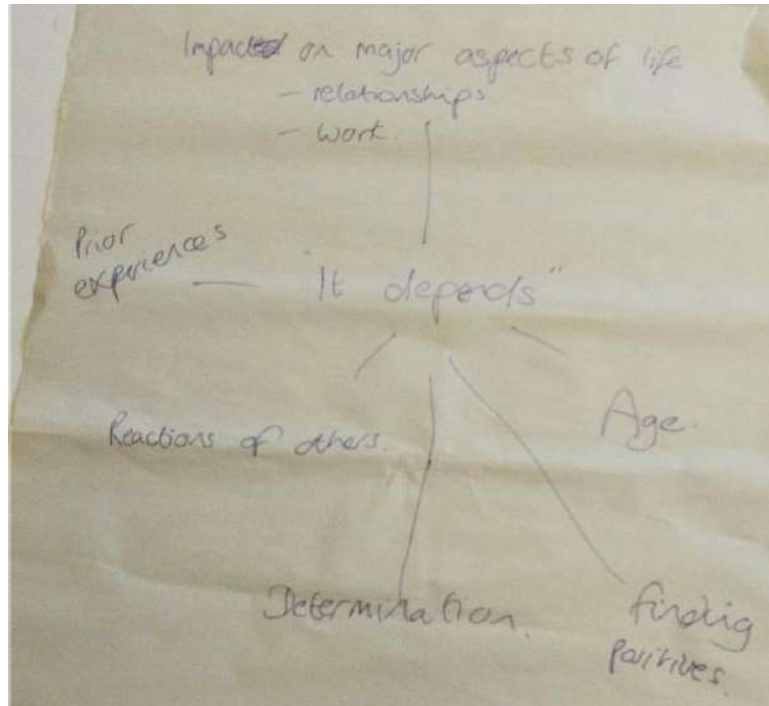 Impact on major aspects of life
- relationships
- work.
Prior
experiences
"It depends"
Age.
Reactions of others.
Determination.
finding
positives.